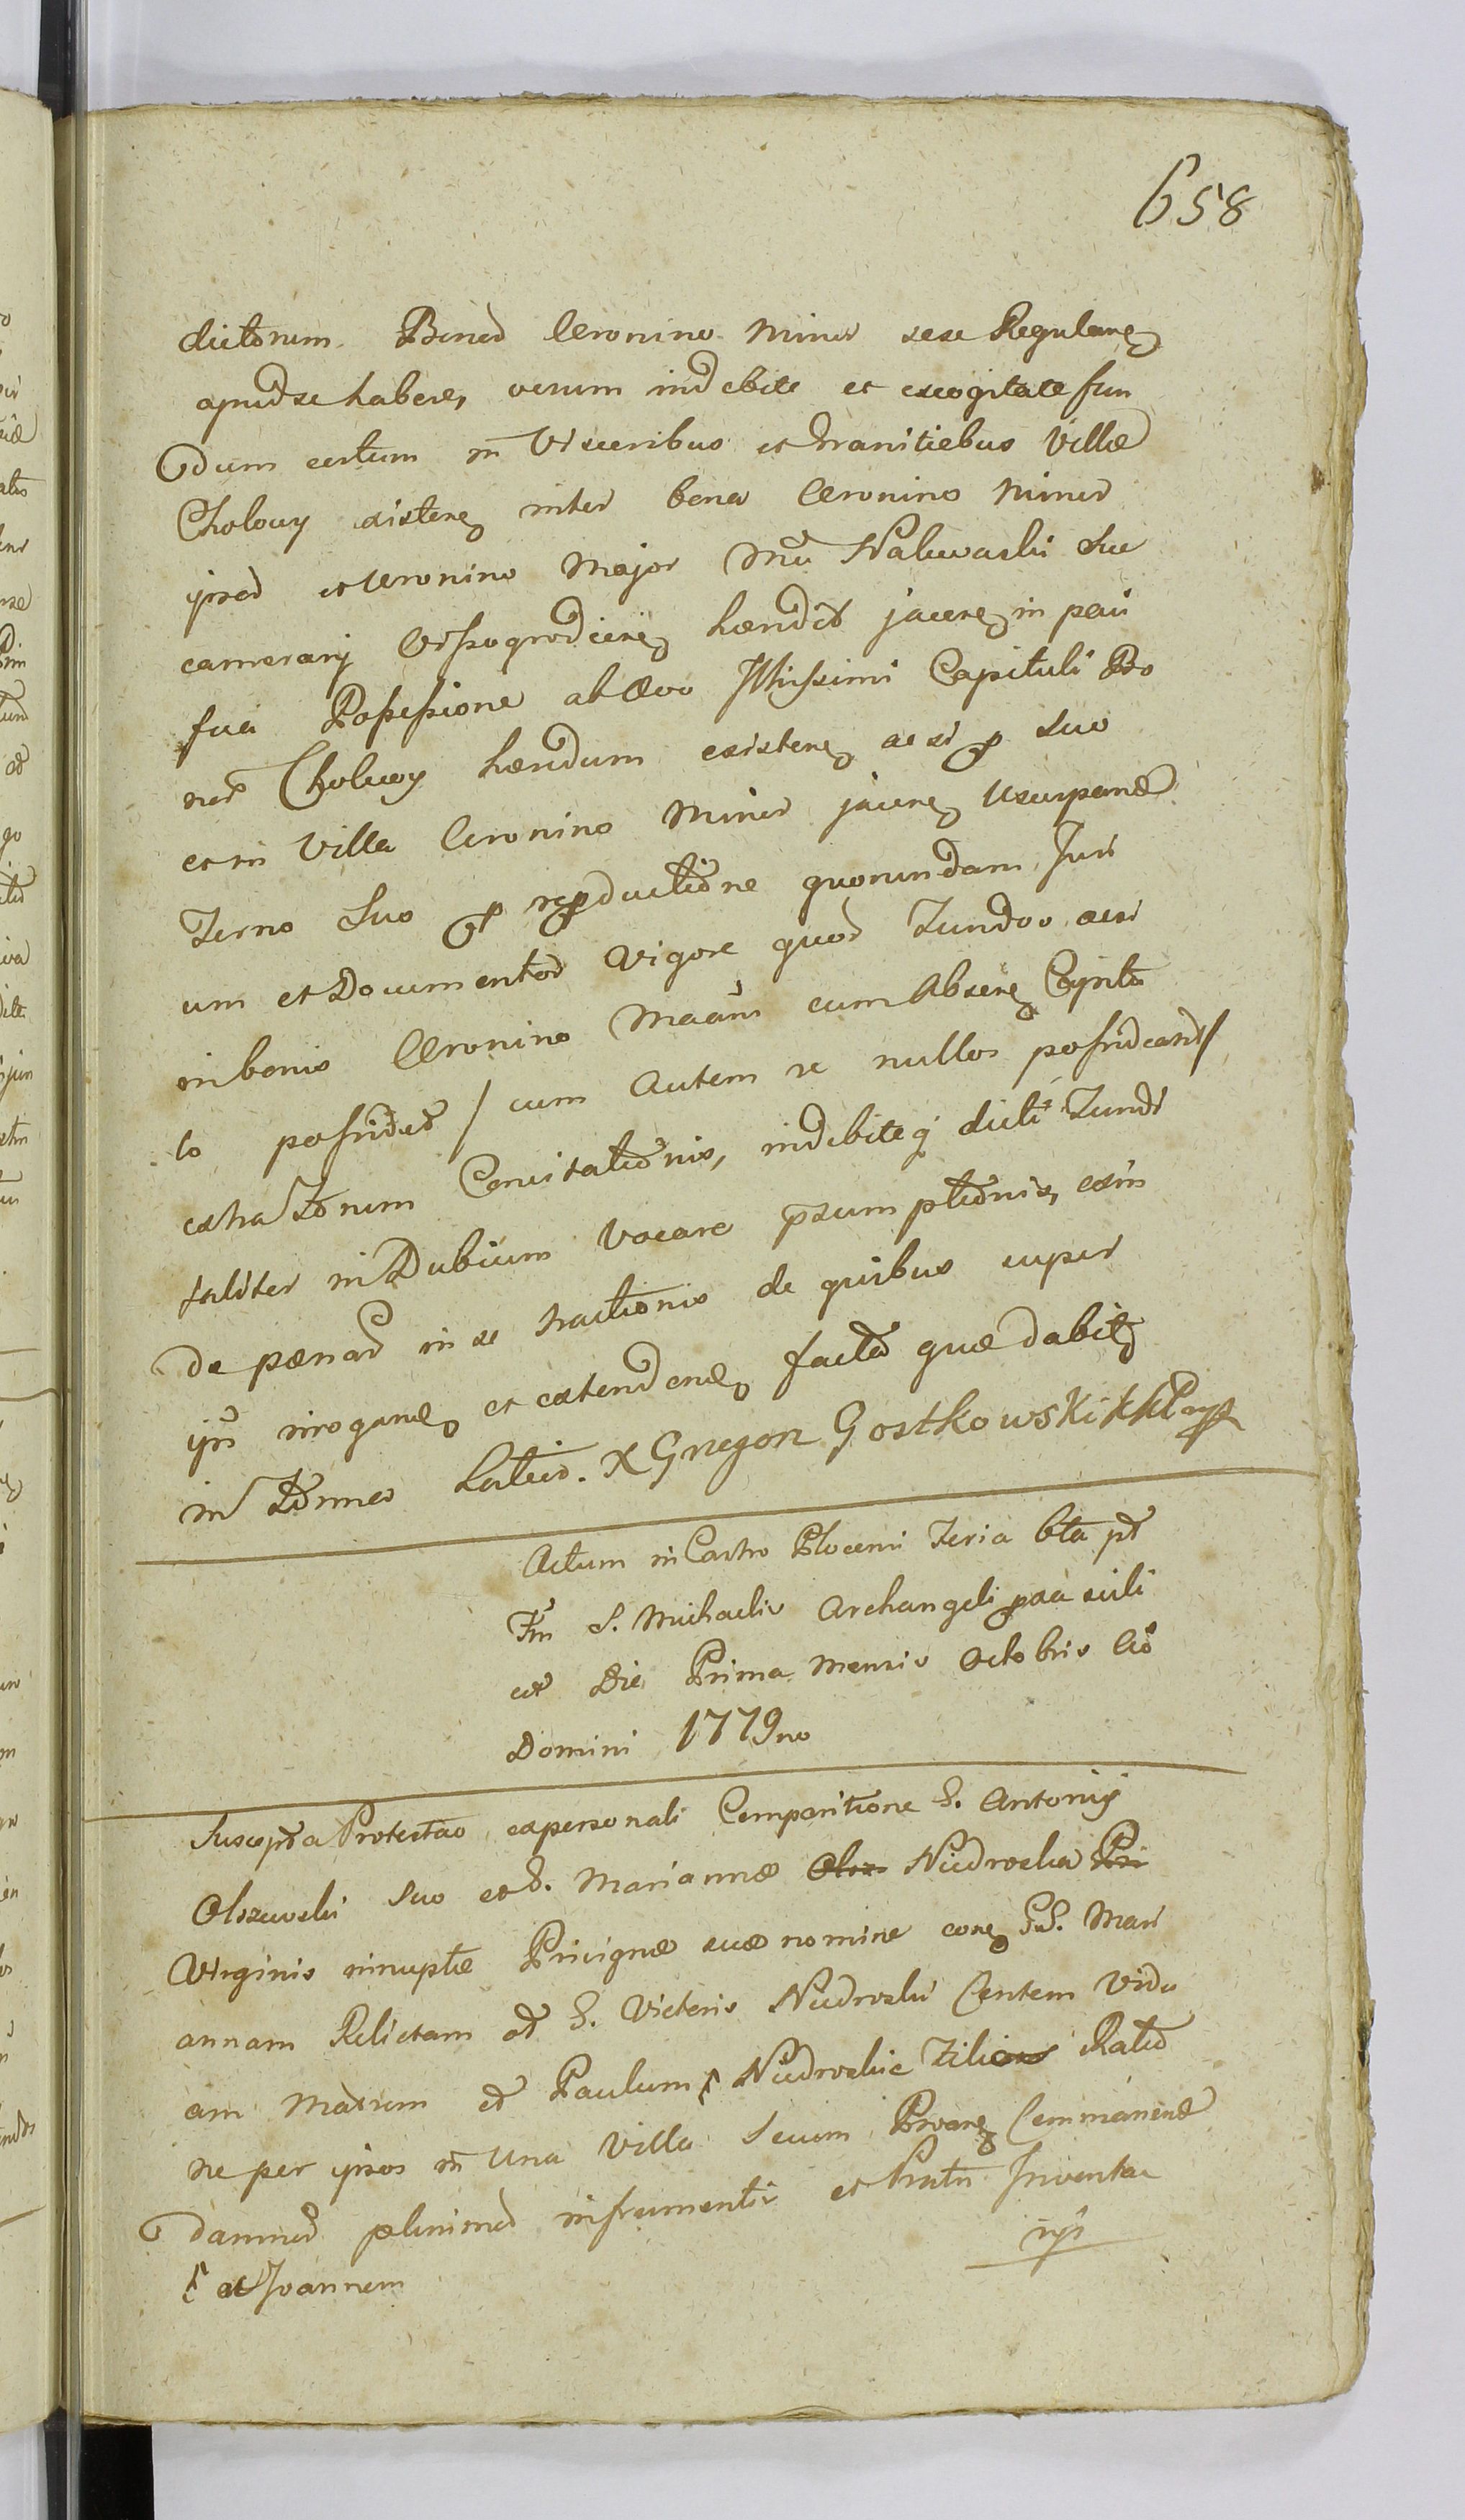 658
dictorum Bonor Ceronino Minor sese Regulare
apud se habere, verum indebite et excogitate fun
dum certum in Visceribus et Granitiebus Villæ
Cholowy existere inter bona Ceronino Minor
ipsor et Ceronino Major Nalewaski Suc
camerarij Wyszogrodiens hæredit jacere in paci
fica Possessione ab ævo Illssimi Capituli Bo
nor Cholewy hæredum existere ac si suo
et in Villa Ceronino Minor jacere Usurpane
Terno Suo reproductione quorundam Juri
um et Documentor Vigore quor Fundos acsi
in bonis Ceronino cum Absere
to possidet / cum Autem se nullos possideant /
extra Concitationis, indebiteq dicti Fundi
taliter in Dubium Vocare præsumptionis,
de pænar in se tractionis de quibus super
ijs irrogane et extendene facta quæ dabit
in Termino Latius. X Gregorz Gostkowski
Actum in Castro Plocensi Feria 6ta pt
Ftm S. Michaelis Archangeli pxa scili
cet Die Prima Mensis Octobris Ao
Domini 1779no
Suscepta Protestao ex personali Comparitione G. Antonij
Olszewski Suo et G. Mariannæ Niedroska
Virginis innuptæ Privignæ suæ nomine cone GG. Mari
annam Relictam ol G. Victoris Niedroski Consortem Vidu
am Matrem et Paulum Niedroskie Filios Ratio
ne per ipsos in Una Villa Secum Commanene
damnor plurimor in frumentis et Pratis Inventa
rijs
et Joannem